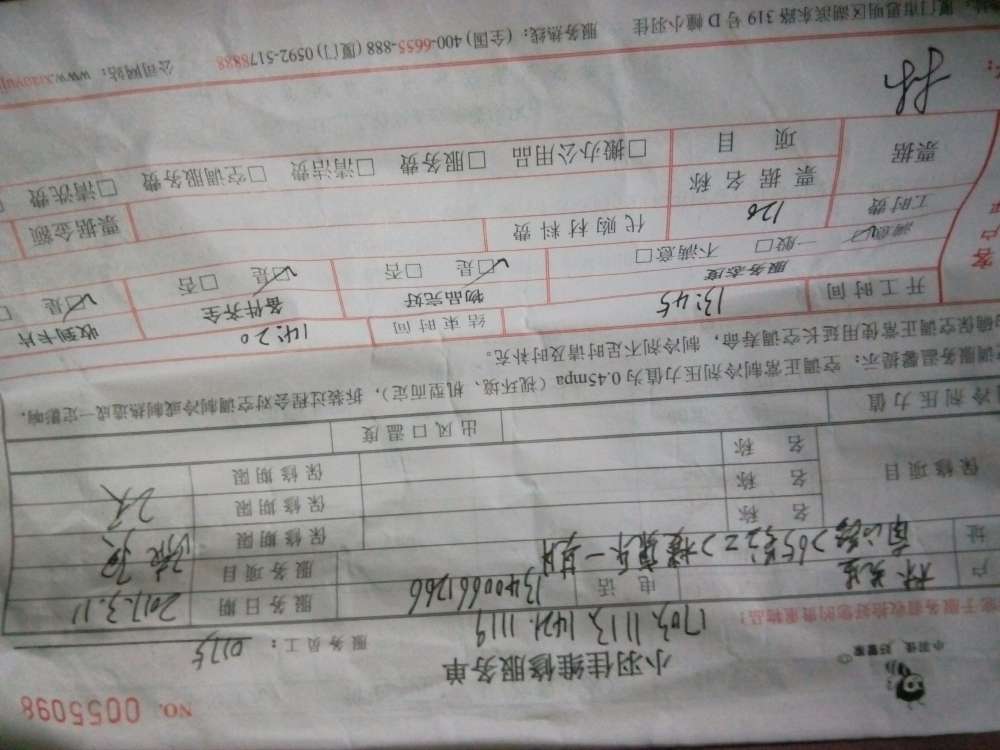 NO. 0055098
小羽佳 好管家
小羽佳维修服务单
服务员工： 0175
1703.1113.1421.1119
于服务前收拾好您的贵重物品！
户 林先生 电话 13400661266 服务日期 2017.3.11
址 服务项目
保修项目 名称 保修期限
名称 保修期限 2人
名称 保修期限
冷剂压力值 出风口温度
调服务温馨提示：空调正常制冷剂压力值为0.45mpa（视环境、机型而定），拆装过程会对空调制冷或制热造成一定影响，
确保空调正常使用延长空调寿命，制冷剂不足时请及时补充。
开工时间 13:45 结束时间 14:20 收到卡片
服务态度 物品完好 备件齐全 ☑是
满意☑ 一般□ 不满意□ ☑是 □否 ☑是 □否
工时费 120 代购材料费 票据金额
票据 票据名称
项目 □搬办公用品 □服务费 □清洁费 □空调服务费 □清洗费
客户
林
厦门市思明区湖滨东路 319 号 D 幢小羽佳 服务热线：(全国) 400-6655-888 (厦门) 0592-5178888 公司网站：www.xiaoyuj